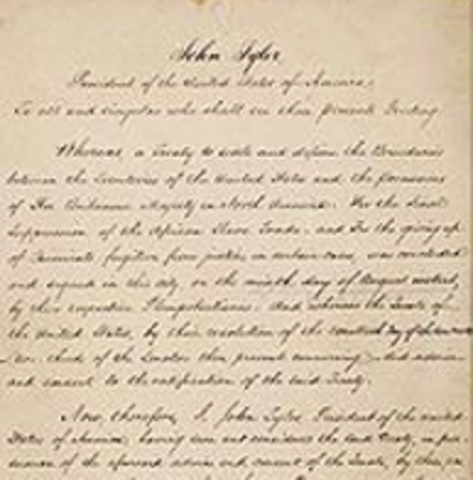 John Tyler
President of the United States of America,
To all and singular who shall see these presents Greeting
Whereas, a Treaty to settle and define the Boundaries
between the Territories of the United States and the possessions
of Her Britannic Majesty in North America: For the final
Suppression of the African Slave Trade: and For the giving up
of Criminals fugitive from justice in certain cases, was concluded
and signed in this city, on the ninth day of August instant,
by their respective Plenipotentiaries: And whereas the Senate of
the United States, by their resolution of the
two thirds of the Senators then present concurring did advise
and consent to the ratification of the said Treaty.
Now, therefore, I, John Tyler, President of the United
States of America, having seen and considered the said Treaty, in pur-
suance of the aforesaid advice and consent of the Senate, by